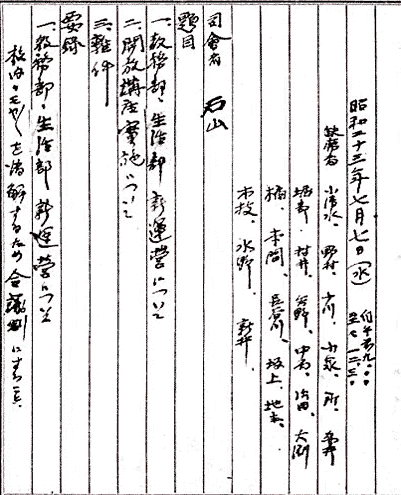 昭和二十三年七月七日(水) 自午前九.〇〇 至〃一二.三〇
缺席者 小清水、野村、小川、小泉、所、
堀、村井、谷野、中西、治田、大渕
橘、本間、長谷川、坂上、地主、
木枝、水野、新井、
司会者 石山
題目
一、教務部、生活部新運営について
二、開放講座実施について
三、雑件
要録
一、教務部、生活部新運営について
校内のモヤを清解するため合議制にする事